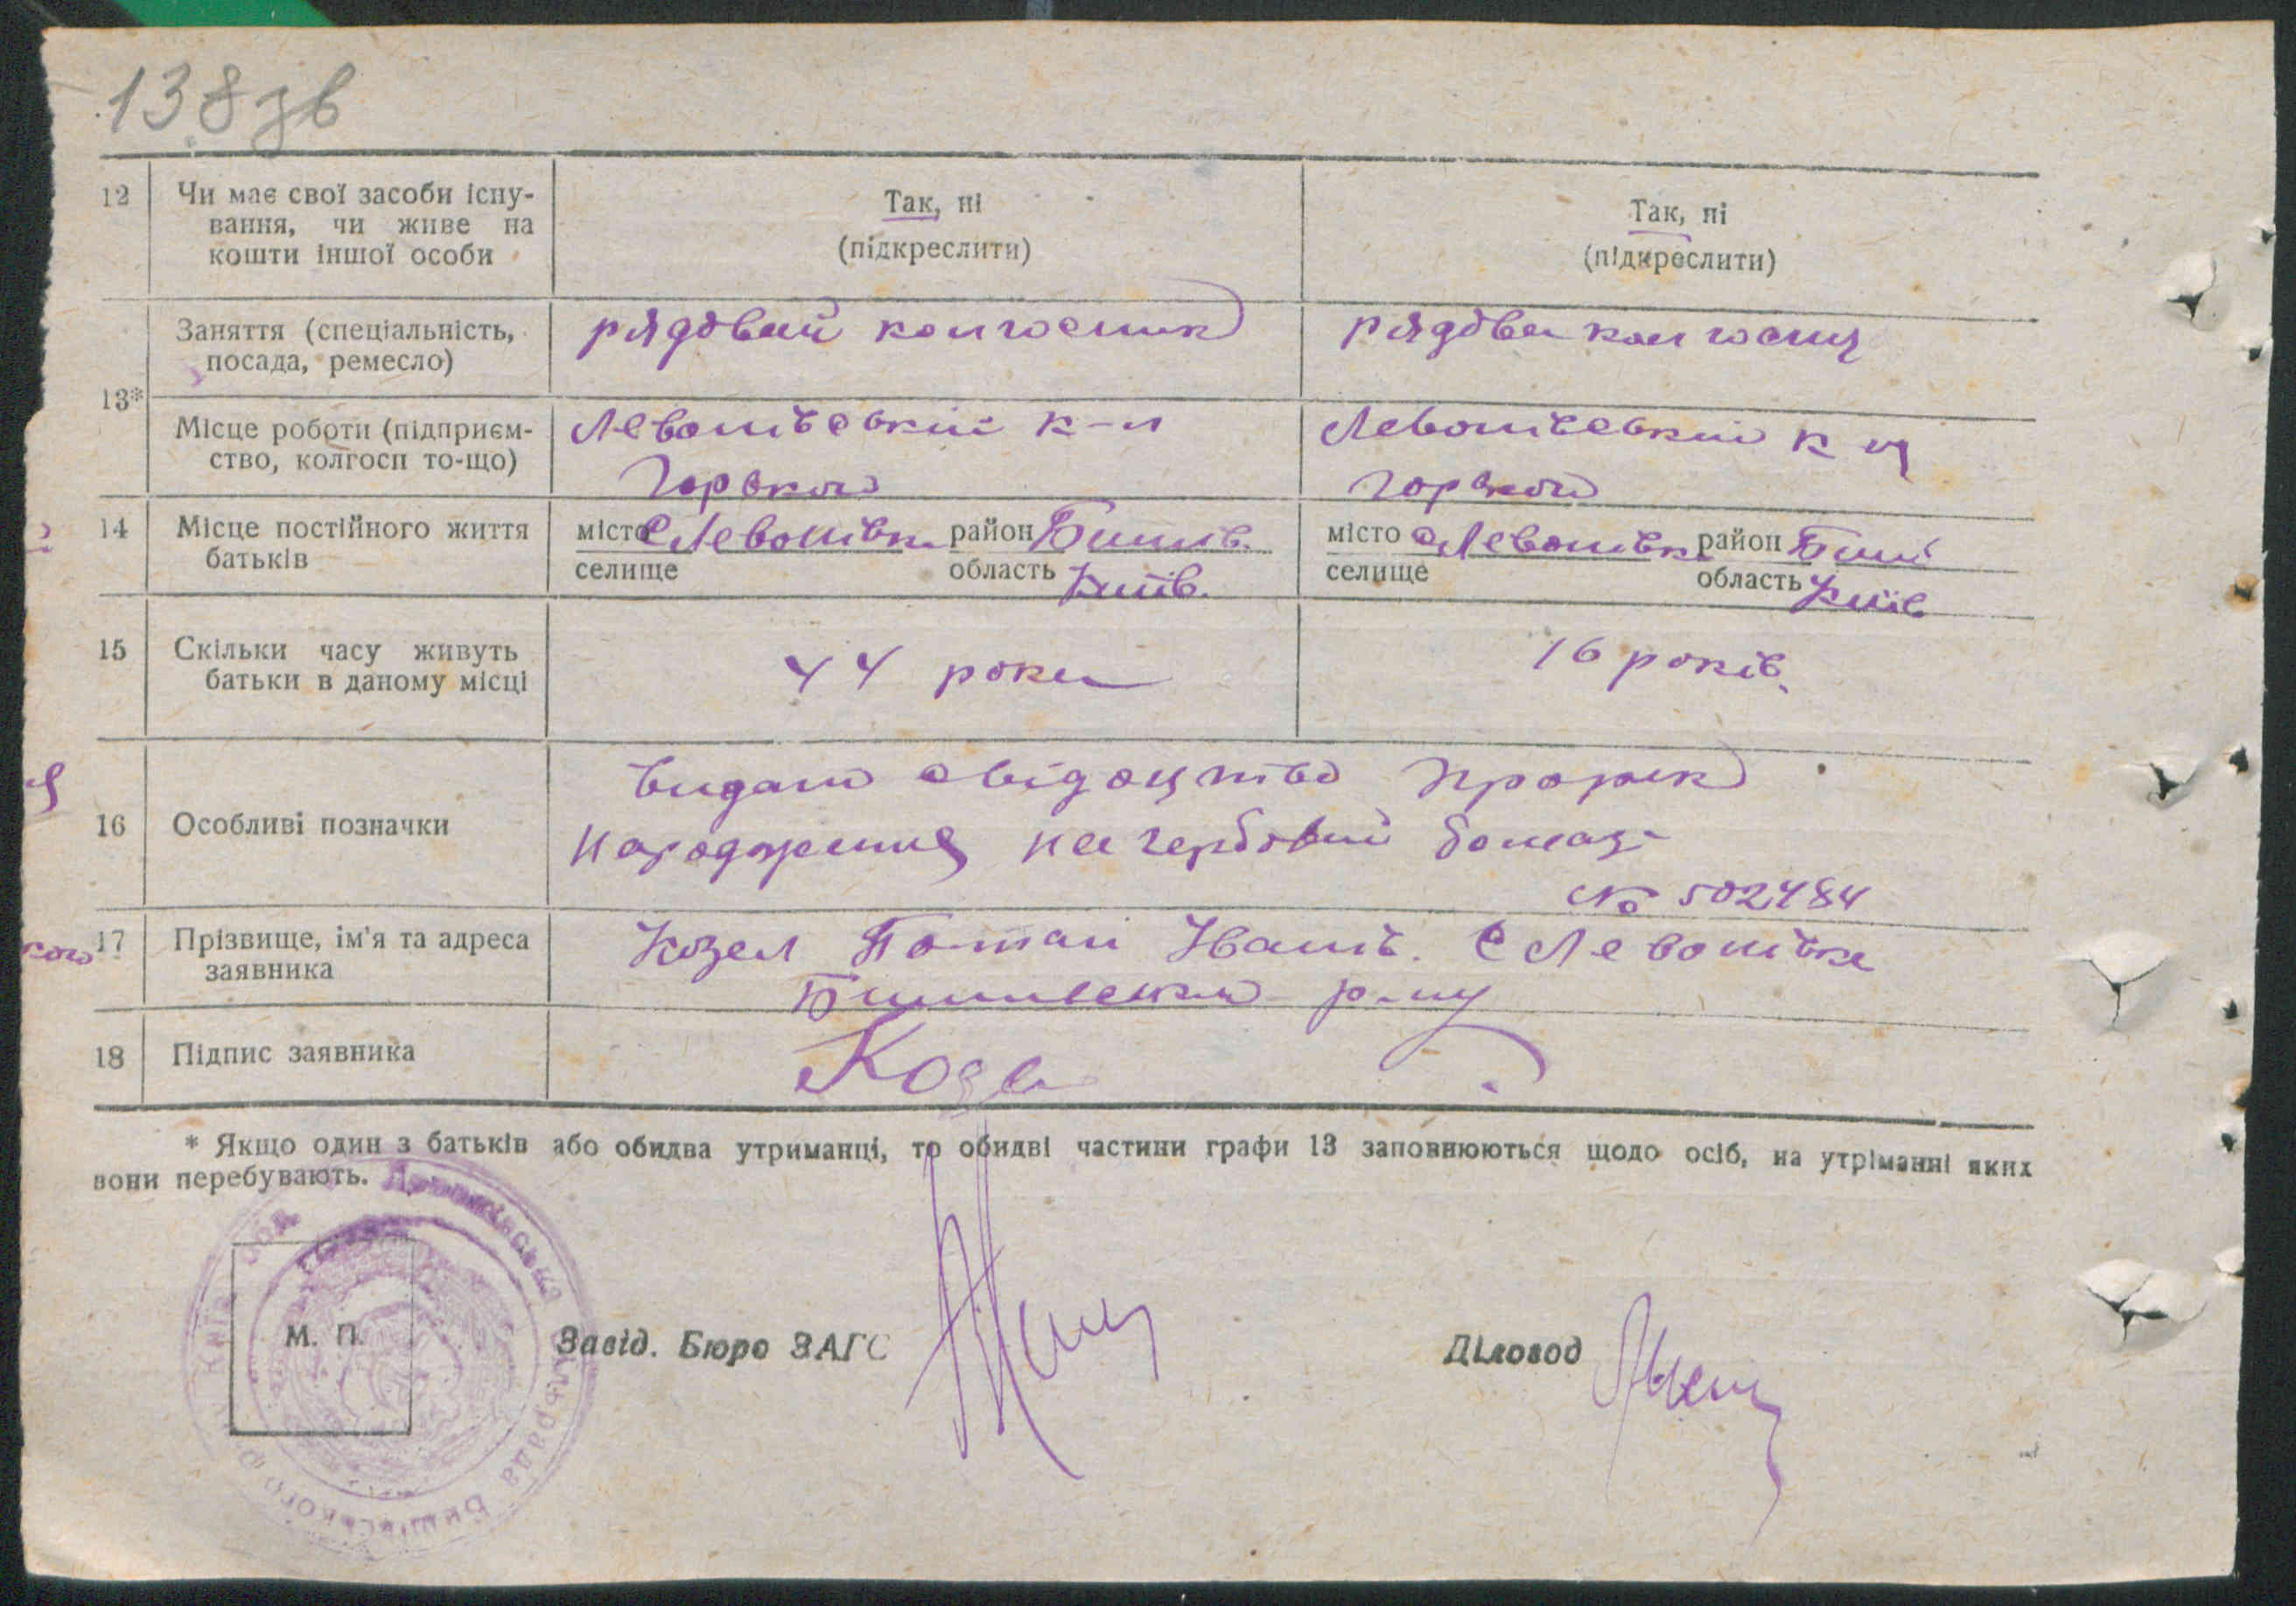 138 зв
12 Чи має свої засоби існу-
вання, чи живе на
кошти іншої особи
Так, ні
(підкреслити)
Так, ні
(підкреслити)
13*
Заняття (спеціальність,
посада, ремесло)
рядовий колгоспник
рядова колгоспн
Місце роботи (підприєм-
ство, колгосп то-що)
Левонівський к-п
Горького
Левонівський к
Горького
14 Місце постійного життя
батьків
місто с Левонівка район Бишів.
селище область Київ.
місто с Левонівк район Биш
селище область Київ
15 Скільки часу живуть
батьки в даному місці
44 роки
16 років.
16 Особливі позначки
видано свідоцтво про
народження на гербовий бомазі
№ 502484
17 Прізвище, ім'я та адреса
заявника
Козел Потап Іванів. с Левонівка
Бишівського р-ну
18 Підпис заявника
Козел
* Якщо один з батьків або обидва утриманці, то обидві частини графи 13 заповнюються щодо осіб, на утріманні яких
вони перебувають.
М. П.
Завід. Бюро ЗАГС
Діловод
кого